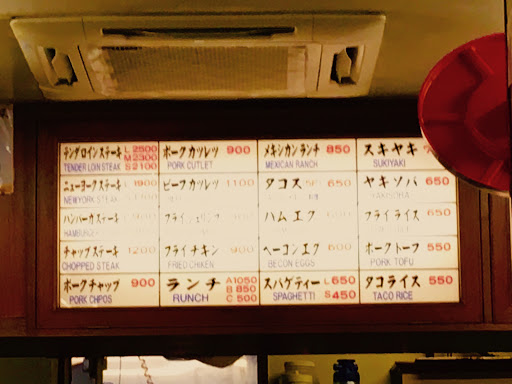 テンダロインステーキ L 2500
M 2300
S 2100
TENDER LOIN STEAK
ポークカツレツ 900
PORK CUTLET
メキシカンランチ 850
MEXICAN RANCH
スキヤキ
SUKIYAKI
ニューヨークステーキ L 1900
NEWYORK STEAK
ビーフカツレツ 1100
タコス 5P 650
ヤキソバ 650
YAKISOBA
ハンバーガステーキ
HAMBURG
フライ
ハムエク
フライライス 650
チャップステーキ 1200
CHOPPED STEAK
フライチキン 900
FRIED CHIKEN
ベーコンエク 600
BECON EGGS
ポークトーフ 550
PORK TOFU
ポークチャップ 900
PORK CHPOS
ランチ A 1050
B 850
C 500
RUNCH
スパゲティー L 650
S 450
SPAGHETTI
タコライス 550
TACO RICE